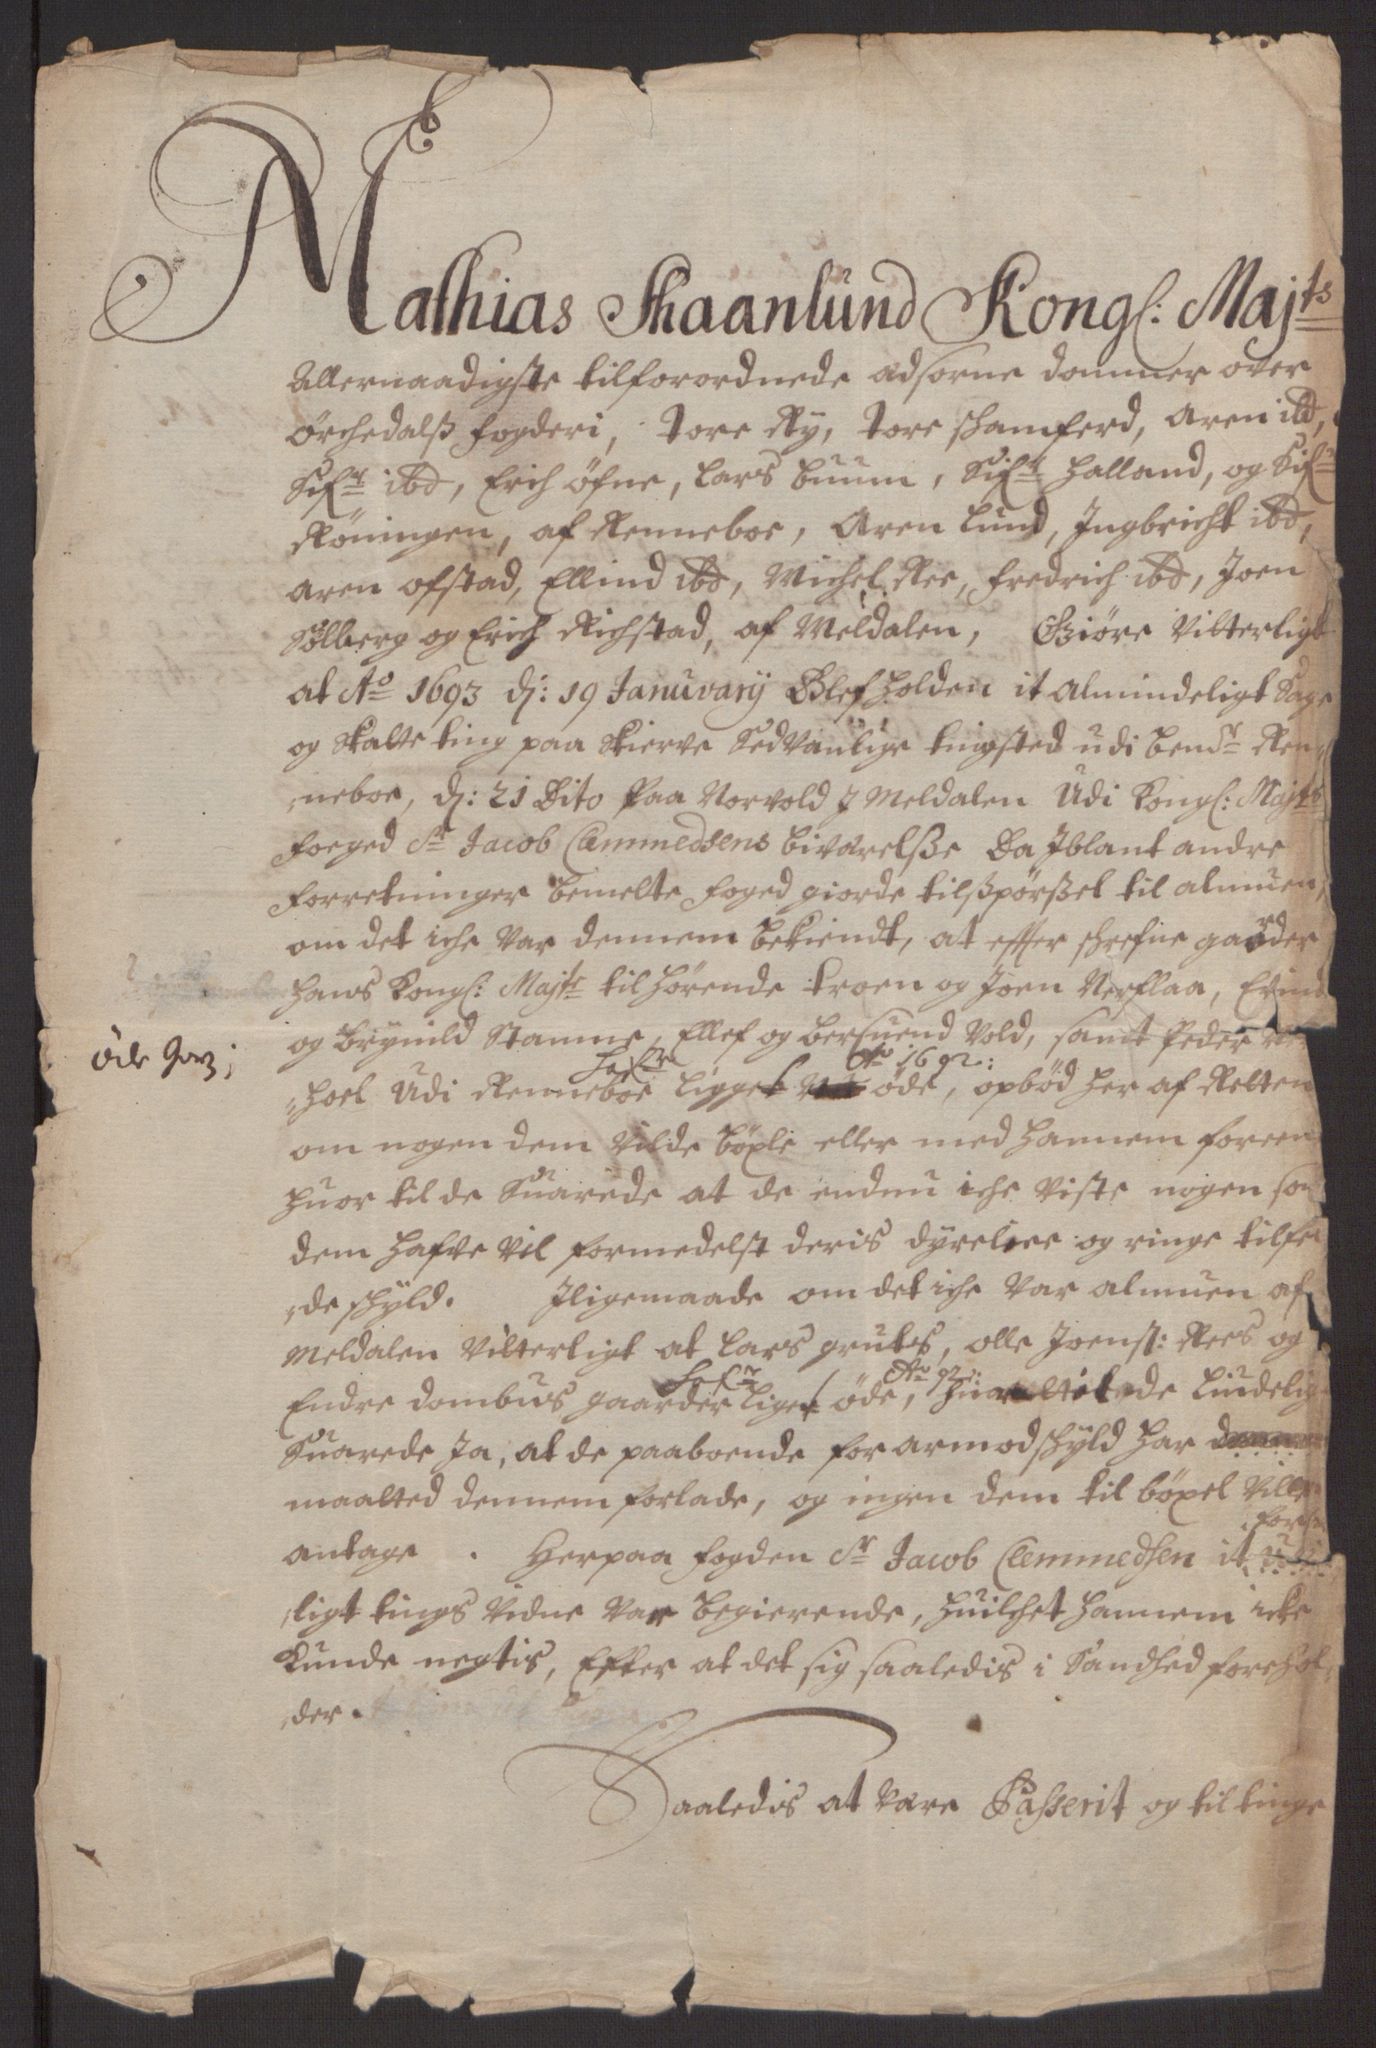 Mathias Skaanlund Kongl: Majts
Allernaadigste tilforordnede Edsorne dommer over
Örchedalß fogderi, Tore Ry, Tore Skamferd, Aren ibd,
Sifr ibd, Erich öfne, Lars buum, Sifr Halland, og Sifr
Röningen, af Renneboe, Aren Lund, Ingbricht ibd,
Aren ofstad, Ellind ibd, Michel Ree, fredrich ibd, Joen
Sølberg og Erich Richstad, af Meldalen, Giöre Vitterligt
at Ao 1693 dj: 19 Januvarij Blef holden it almindeligt Sage
og Skatte ting paa Skierve Sedvanlige tingsted udi bende Ren
neboe, dj: 21 Dito Paa Norvold J Meldalen Udi Kongl: Majts
foeged Sr Jacob Clemmedsens biværelsße Da Jblant andre
forretninger bemelte foged giorde tilßpörßel til almuen,
om det iche Var dennem bekiendt, at effter schrefne gaarder
Hans Kongl: Majts tilhörende troen og Joen Nerflaa, Erind
og brynild Stamne, Ellef og bersuend Vold, samt Peder
hoel Udi Renneboe hafr ligget öde, Ao 1692: opböd her af Retten
öde Jorr;
om nogen dem Vilde böxle eller med hannem foreen
huor til de Suarede at de endnu iche Viste nogen som
dem hafve Vil formedelst deris dyrelee og ringe tilfel
de skyld. Jligemaade om det iche Var almuen af
Meldalen Vitterligt at Lars gruts, olle Joens: Rees og
Endre dombus gaarder hafr liget öde, Ao 92: huortil de liudelig
Suarede Ja, at de paaboende for armod skyld har
maatted dennem forlade, og ingen dem til böxel Ville
antage. Herpaa fogden Sr Jacob Clemmedsen it
ligt tings Vidne Var begierende, huilchet hannem icke
kunde negtis, Efter at det sig saaledis i Sandhed forehol
der.
Saaledis at Vare Passerit og til tinge